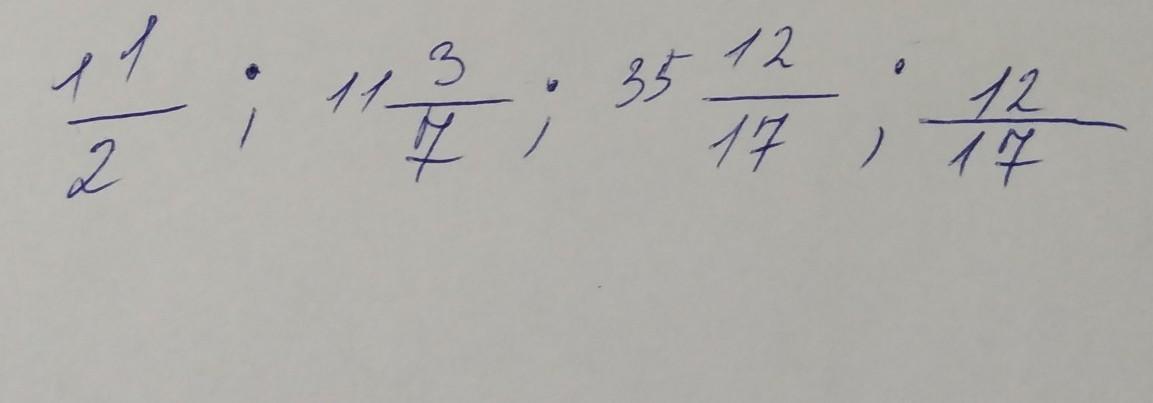 11/2 ; 11 3/7 ; 35 12/17 ; 12/17